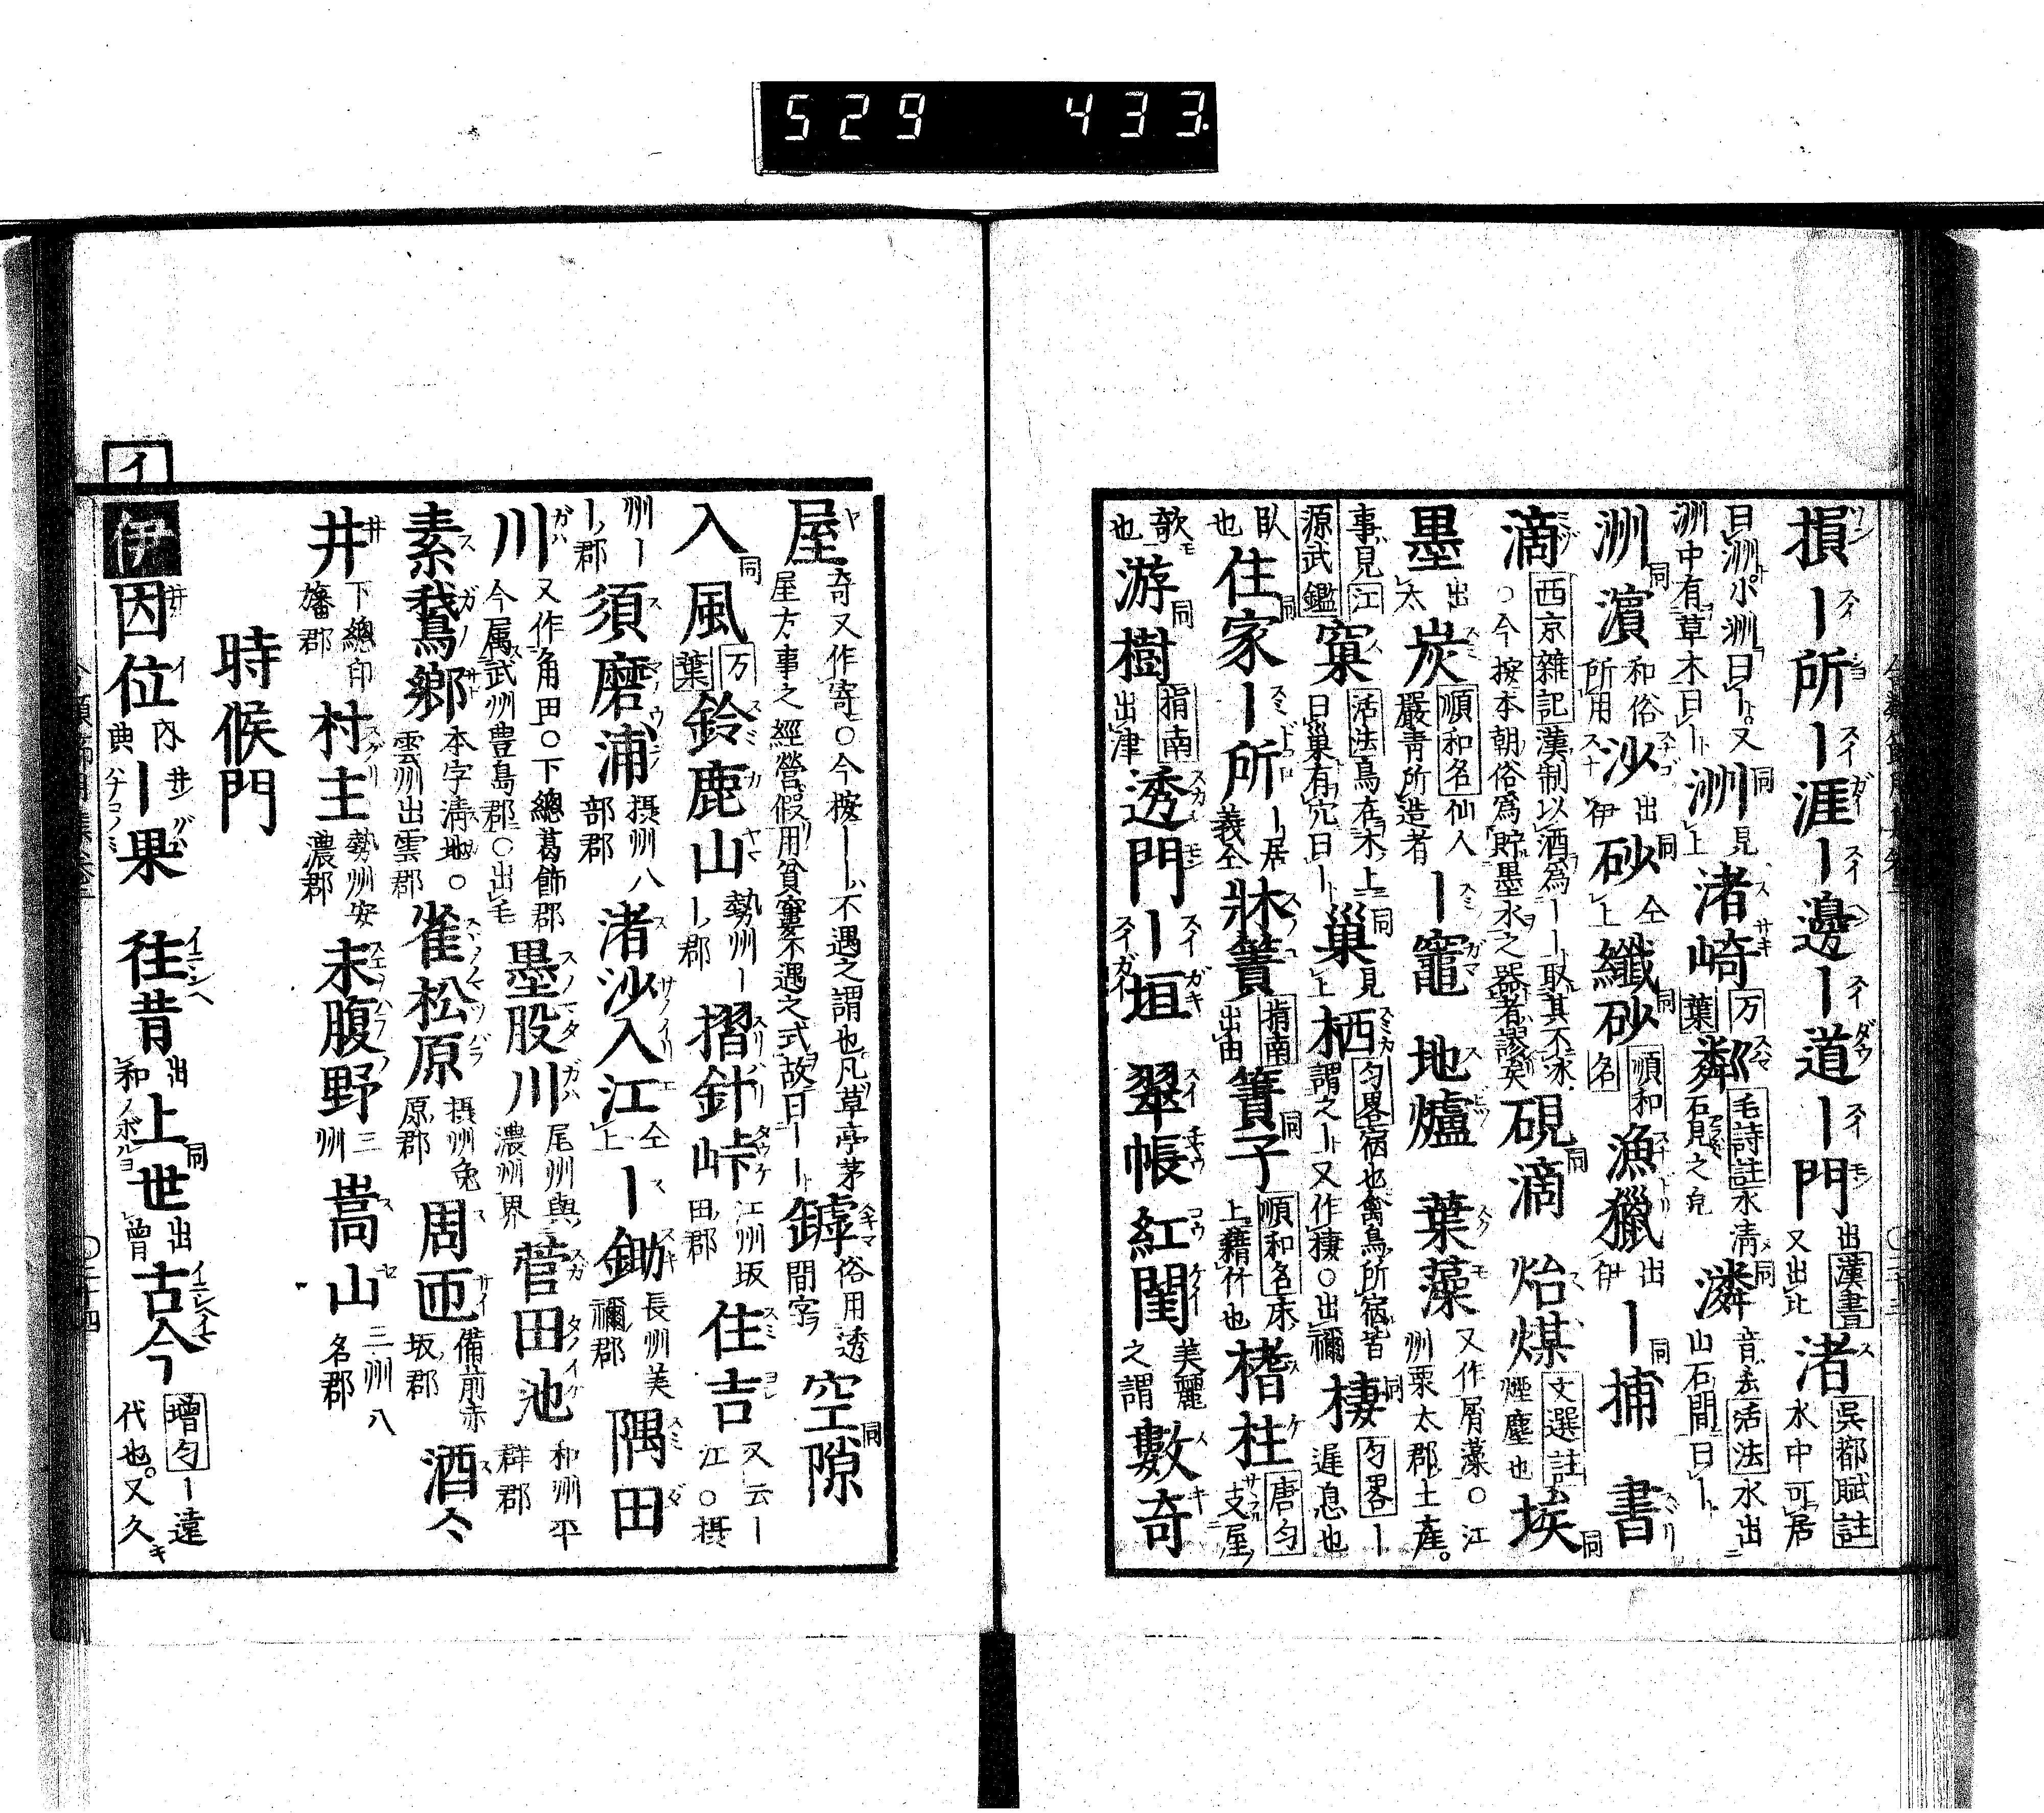 529 433.
損ー所ー涯ー邊ー道ー門 出漢書又出比 渚 吳都賦註水中可居
曰洲小洲曰ー又洲中有草木曰ー 洲 見上 渚崎 万葉 粼 毛詩註水清石見之皃 潾 音 活法水出山石間曰ー
洲濱 和俗所用 沙 出伊 砂 仝上 纖砂 順和名 漁獵 出伊 ー捕 書
滴 西京雜記漢制以酒爲ーー取其不冰○今按本朝俗爲貯墨水之器者誤矣 硯滴 炲煤 文選註煙塵也 埃
墨 出太 炭 順和名仙人嚴青所造者 ー竈 地爐 葉藻 又作屑藻○江州栗太郡土産
事見江源武鑑 窠 活法鳥在木上曰巢有穴曰ー 巢 見上 栖 匀畧宿也禽鳥所宿皆謂之ー又作棲○出禰 棲 匀畧ー遲息也
臥也 住家ー所 ー居義仝 牀簀 指南出由 簀子 順和名床上藉竹也 榰柱 唐匀支屋
歌也 游樹 指南出津 透門ー垣 翠帳紅閨 美麗之謂 數奇
屋 奇又作寄○今按ーー不遇之謂也凡草亭茅屋方事之經營假用貧窶不遇之式故曰ーー 罅 俗用透間字 空隙
入風 万葉 鈴鹿山 勢州ーー郡 摺針峠 江州坂田郡 住吉 又云ー江○摂
州ーー郡 須磨浦 摂州八部郡 渚沙入江 仝上 ー鋤 長州美禰郡 隅田
川 又作角田○下總葛飾郡今属武州豊島郡○出毛 墨股川 尾州與濃州界 菅田池 和州平群郡
素鵞鄉 本字清地○雲州出雲郡 雀松原 摂州兎原郡 周匝 備前赤坂郡 酒々
井 下總印旛郡 村主 勢州安濃郡 末腹野 三州 嵩山 三州八名郡
時候門
イ
伊 因位 內典 ー果 往昔 出和 上世 出曾 古今 增匀ー遠代也又久